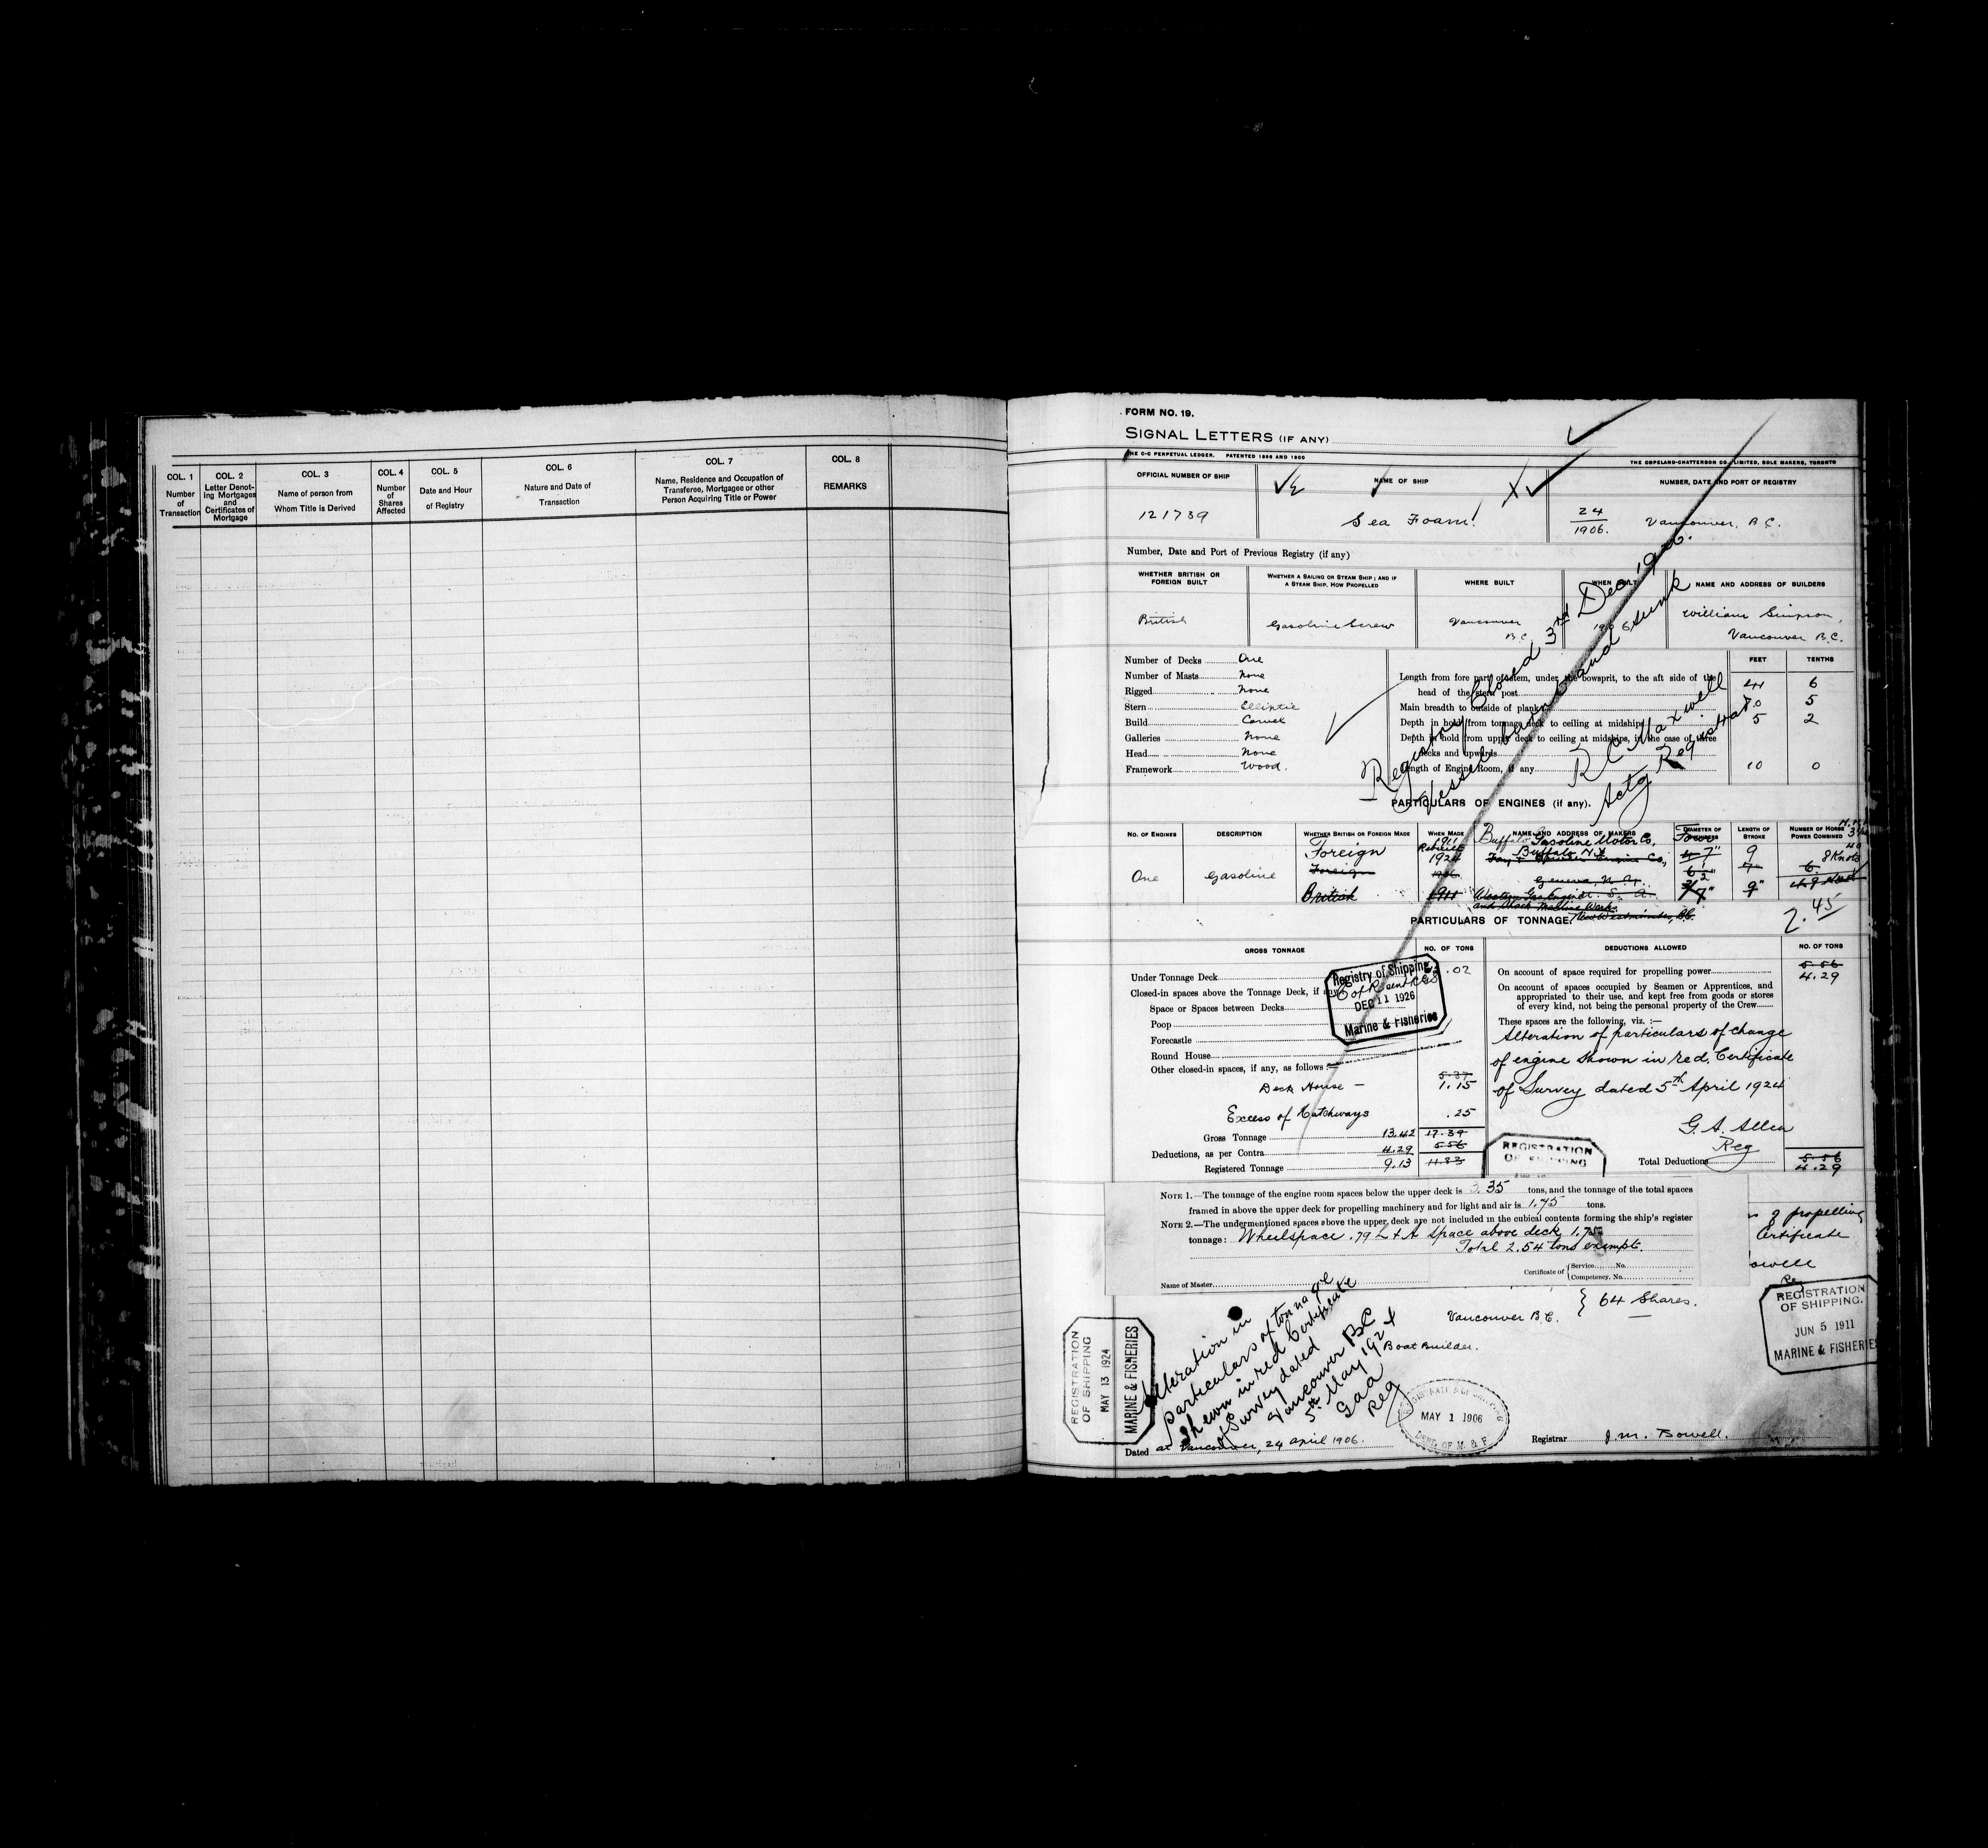 COL. 1
Number
of
Transaction
COL. 2
Letter Denot-
ing Mortgages
and
Certificates of
Mortgage
COL. 3
Name of person from
Whom Title is Derived
COL. 4
Number
of
Shares
Affected
COL. 5
Date and Hour
of Registry
COL. 6
Nature and Date of
Transaction
COL. 7
Name, Residence and Occupation of
Transferee, Mortgagee or other
Person Acquiring Title or Power
COL. 8
REMARKS
FORM NO. 19.
SIGNAL LETTERS (IF ANY)
THE C-C PERPETUAL LEDGER. PATENTED 1896 AND 1900
THE COPELAND-CHATTERSON CO., LIMITED, SOLE MAKERS, TORONTO
OFFICIAL NUMBER OF SHIP
NAME OF SHIP
NUMBER, DATE AND PORT OF REGISTRY
121739
Sea Foam!
24
1906.
Vancouver, B.C.
Number, Date and Port of Previous Registry (if any)
WHETHER BRITISH OR
FOREIGN BUILT
WHETHER A SAILING OR STEAM SHIP; AND IF
A STEAM SHIP, HOW PROPELLED
WHERE BUILT
WHEN BUILT
NAME AND ADDRESS OF BUILDERS
British
Gasoline Screw
Vancouver
B.C.
1906
William Simpson,
Vancouver B.C.
Registry Closed 3rd Dec 1926.
Vessel burnt and sunk
R C Maxwell
Actg Registrar
Number of Decks One
Number of Masts None
Rigged None
Stern Elliptic
Build Carvel
Galleries None
Head None
Framework Wood.
FEET TENTHS
Length from fore part of stem, under the bowsprit, to the aft side of the
head of the stern post 44 6
Main breadth to outside of plank 10 5
Depth in hold from tonnage deck to ceiling at midships 5 2
Depth in hold from upper deck to ceiling at midships, in the case of three
decks and upwards
Length of Engine Room, if any 10 0
PARTICULARS OF ENGINES (if any).
NO. OF ENGINES
DESCRIPTION
WHETHER BRITISH OR FOREIGN MADE
WHEN MADE
NAME AND ADDRESS OF MAKERS
DIAMETER OF
LENGTH OF
STROKE
NUMBER OF HORSE
POWER COMBINED
One
Gasoline
Foreign
Foreign
British
1911
Rebuilt
1924
1906
1911
Buffalo Gasoline Motor Co.
Buffalo N.Y.
Engine Co,
Geneva, N.Y.
and Machine Works
New Westminster, B.C.
Four
7"
9
9"
8 Knots
2.45
PARTICULARS OF TONNAGE
GROSS TONNAGE
NO. OF TONS
DEDUCTIONS ALLOWED
NO. OF TONS
Under Tonnage Deck 12.02
Closed-in spaces above the Tonnage Deck, if any
Space or Spaces between Decks
Poop
Forecastle
Round House
Other closed-in spaces, if any, as follows:—
5.37
Deck House — 1.15
Excess of Hatchways .25
Gross Tonnage 13.42 17.39
Deductions, as per Contra 4.29 5.56
Registered Tonnage 9.13 11.83
Registry of Shipping
DEC 11 1926
Marine & Fisheries
On account of space required for propelling power 5.56
4.29
On account of spaces occupied by Seamen or Apprentices, and
appropriated to their use, and kept free from goods or stores
of every kind, not being the personal property of the Crew
These spaces are the following, viz.:—
Alteration of particulars of change
of engine shown in red. Certificate
of Survey dated 5th April 1924
G. A. Allen
Reg
REGISTRATION
OF SHIPPING
Total Deductions 5.56
4.29
NOTE 1.—The tonnage of the engine room spaces below the upper deck is 3.35 tons, and the tonnage of the total spaces
framed in above the upper deck for propelling machinery and for light and air is 1.75 tons.
NOTE 2.—The undermentioned spaces above the upper deck are not included in the cubical contents forming the ship's register
tonnage: Wheelspace .79 L & A space above deck 1.75
Total 2.54 tons exempt.
Name of Master
Certificate of
Service No.
Competency, No.
of propelling
Certificate
Reg
64 Shares.
Vancouver B.C.
Boat Builder.
REGISTRATION
OF SHIPPING.
JUN 5 1911
MARINE & FISHERIES
REGISTRATION
OF SHIPPING
MAY 13 1924
MARINE & FISHERIES
Alteration in
particulars of tonnage
shewn in red Certificate
of Survey dated
Vancouver BC
5th May 1924
GAA
Reg
MAY 1 1906
DEPT. OF M. & F.
Dated at Vancouver, 24 April 1906.
Registrar J. M. Bowell.